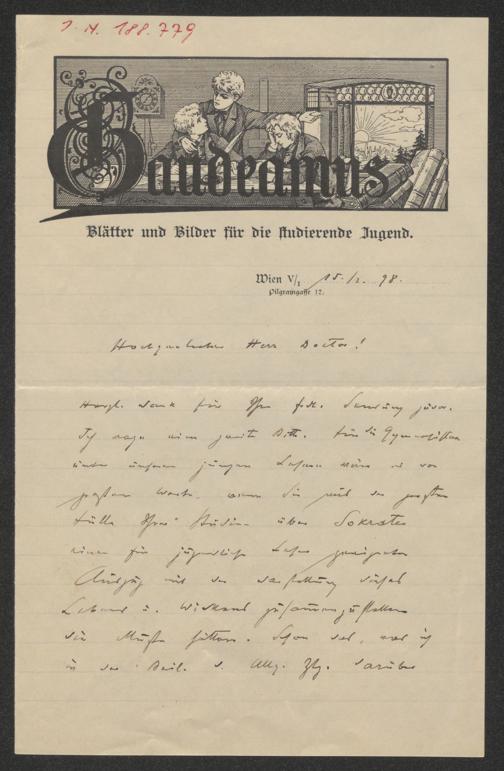 I.N. 188.779
Gaudeamus
Blätter und Bilder für die studierende Jugend.
Wien V/1 15./2. 98.
Pilgramgasse 12.
Hochgeehrter Herr Doctor!
Herzl. Dank für Ihre frdl. Sendung zuvor.
Ich wage eine zweite Bitte. Für die Gymnasisten
unter unseren jungen Lesern wäre es von
großem Werte, wenn Sie aus der großen
Fülle Ihrer Studien über Sokrates
einen für jugendliche Leser geeigneten
Auszug mit der Darstellung dieses
Lebens u. Wirkens zusammenzustellen
die Muße hätten. Schon das, was ich
in der Beil. d. Allg. Ztg. darüber